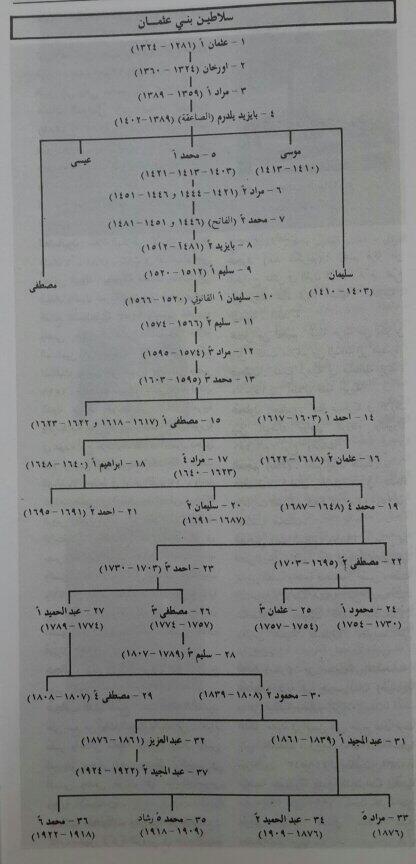 سلاطين بني عثمان
١ - عثمان أ (١٢٨١ - ١٣٢٤)
٢ - اورخان (١٣٢٤ - ١٣٦٠)
٣ - مراد أ (١٣٥٩ - ١٣٨٩)
٤ - بايزيد يلدرم (الصاعقة) (١٣٨٩-١٤٠٢)
موسى
(١٤١٠-١٤١٣)
٥ - محمد أ
(١٤٠٣-١٤١٣-١٤٢١)
عيسى
سليمان
(١٤٠٣-١٤١٠)
مصطفى
٦ - مراد ٢ (١٤٢١-١٤٤٤ و ١٤٤٦-١٤٥١)
٧ - محمد ٢ (الفاتح) (١٤٤٦ و ١٤٥١-١٤٨١)
٨ - بايزيد ٢ (١٤٨١-١٥١٢)
٩ - سليم أ (١٥١٢-١٥٢٠)
١٠ - سليمان أ القانوني (١٥٢٠-١٥٦٦)
١١ - سليم ٢ (١٥٦٦-١٥٧٤)
١٢ - مراد ٣ (١٥٧٤-١٥٩٥)
١٣ - محمد ٣ (١٥٩٥-١٦٠٣)
١٤ - احمد أ (١٦٠٣-١٦١٧)
١٥ - مصطفى أ (١٦١٧-١٦١٨ و ١٦٢٢-١٦٢٣)
١٦ - عثمان ٢ (١٦١٨-١٦٢٢)
١٧ - مراد ٤
(١٦٢٣-١٦٤٠)
١٨ - ابراهيم أ (١٦٤٠-١٦٤٨)
١٩ - محمد ٤ (١٦٤٨-١٦٨٧)
٢٠ - سليمان ٢
(١٦٨٧-١٦٩١)
٢١ - احمد ٢ (١٦٩١-١٦٩٥)
٢٢ - مصطفى ٢ (١٦٩٥-١٧٠٣)
٢٣ - احمد ٣ (١٧٠٣-١٧٣٠)
٢٤ - محمود أ
(١٧٣٠-١٧٥٤)
٢٥ - عثمان ٣
(١٧٥٤-١٧٥٧)
٢٦ - مصطفى ٣
(١٧٥٧-١٧٧٤)
٢٧ - عبد الحميد أ
(١٧٧٤-١٧٨٩)
٢٨ - سليم ٣ (١٧٨٩-١٨٠٧)
٢٩ - مصطفى ٤ (١٨٠٧-١٨٠٨)
٣٠ - محمود ٢ (١٨٠٨-١٨٣٩)
٣١ - عبد المجيد أ (١٨٣٩-١٨٦١)
٣٢ - عبد العزيز (١٨٦١-١٨٧٦)
٣٧ - عبد المجيد ٢ (١٩٢٢-١٩٢٤)
٣٣ - مراد ٥
(١٨٧٦)
٣٤ - عبد الحميد ٢
(١٨٧٦-١٩٠٩)
٣٥ - محمد ٥ رشاد
(١٩٠٩-١٩١٨)
٣٦ - محمد ٦
(١٩١٨-١٩٢٢)